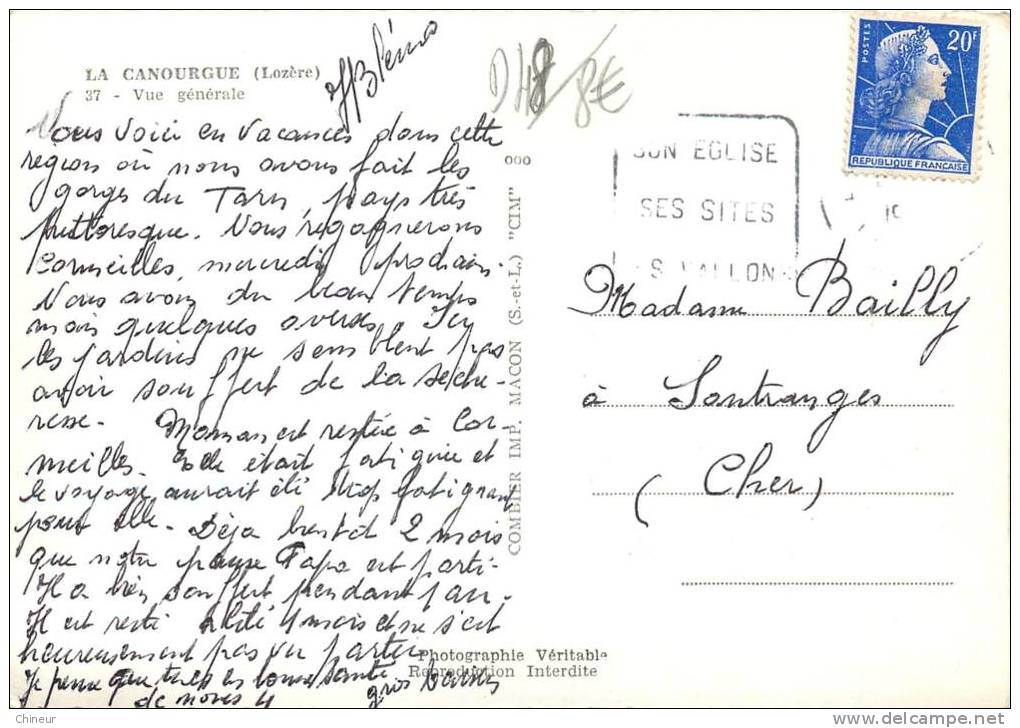 LA CANOURGUE (Lozère)
37 - Vue générale
DH8 8€
Vous voici en vacances dans cette
région où nous avons fait les
gorges du Tarn, pays très
pittoresque. Nous regagnerons
Cormeilles, mercredi prochain.
Nous avons du beau temps
mais quelques averses. Ici
les jardins ne semblent pas
avoir souffert de la séche-
resse. Maman est restée à Cor-
meilles. Elle était fatiguée et
le voyage aurait été trop fatigant
pour elle. Déjà bientôt 2 mois
que notre pauvre Papa est parti.
Il a bien souffert pendant 1 an.
Il est resté alité 4 mois et ne s'est
heureusement pas vu partir.
Je pense que tu es en bonne santé
gros baisers
de nous 4
ooo
COMBIER IMP. MACON (S.-et-L.) "CIM"
Photographie Véritable
Reproduction Interdite
SON EGLISE
SES SITES
S VALLONS
POSTES
20F
REPUBLIQUE FRANCAISE
19
Madame Bailly
à Santranges
(Cher)
Chineur
delcampe.net